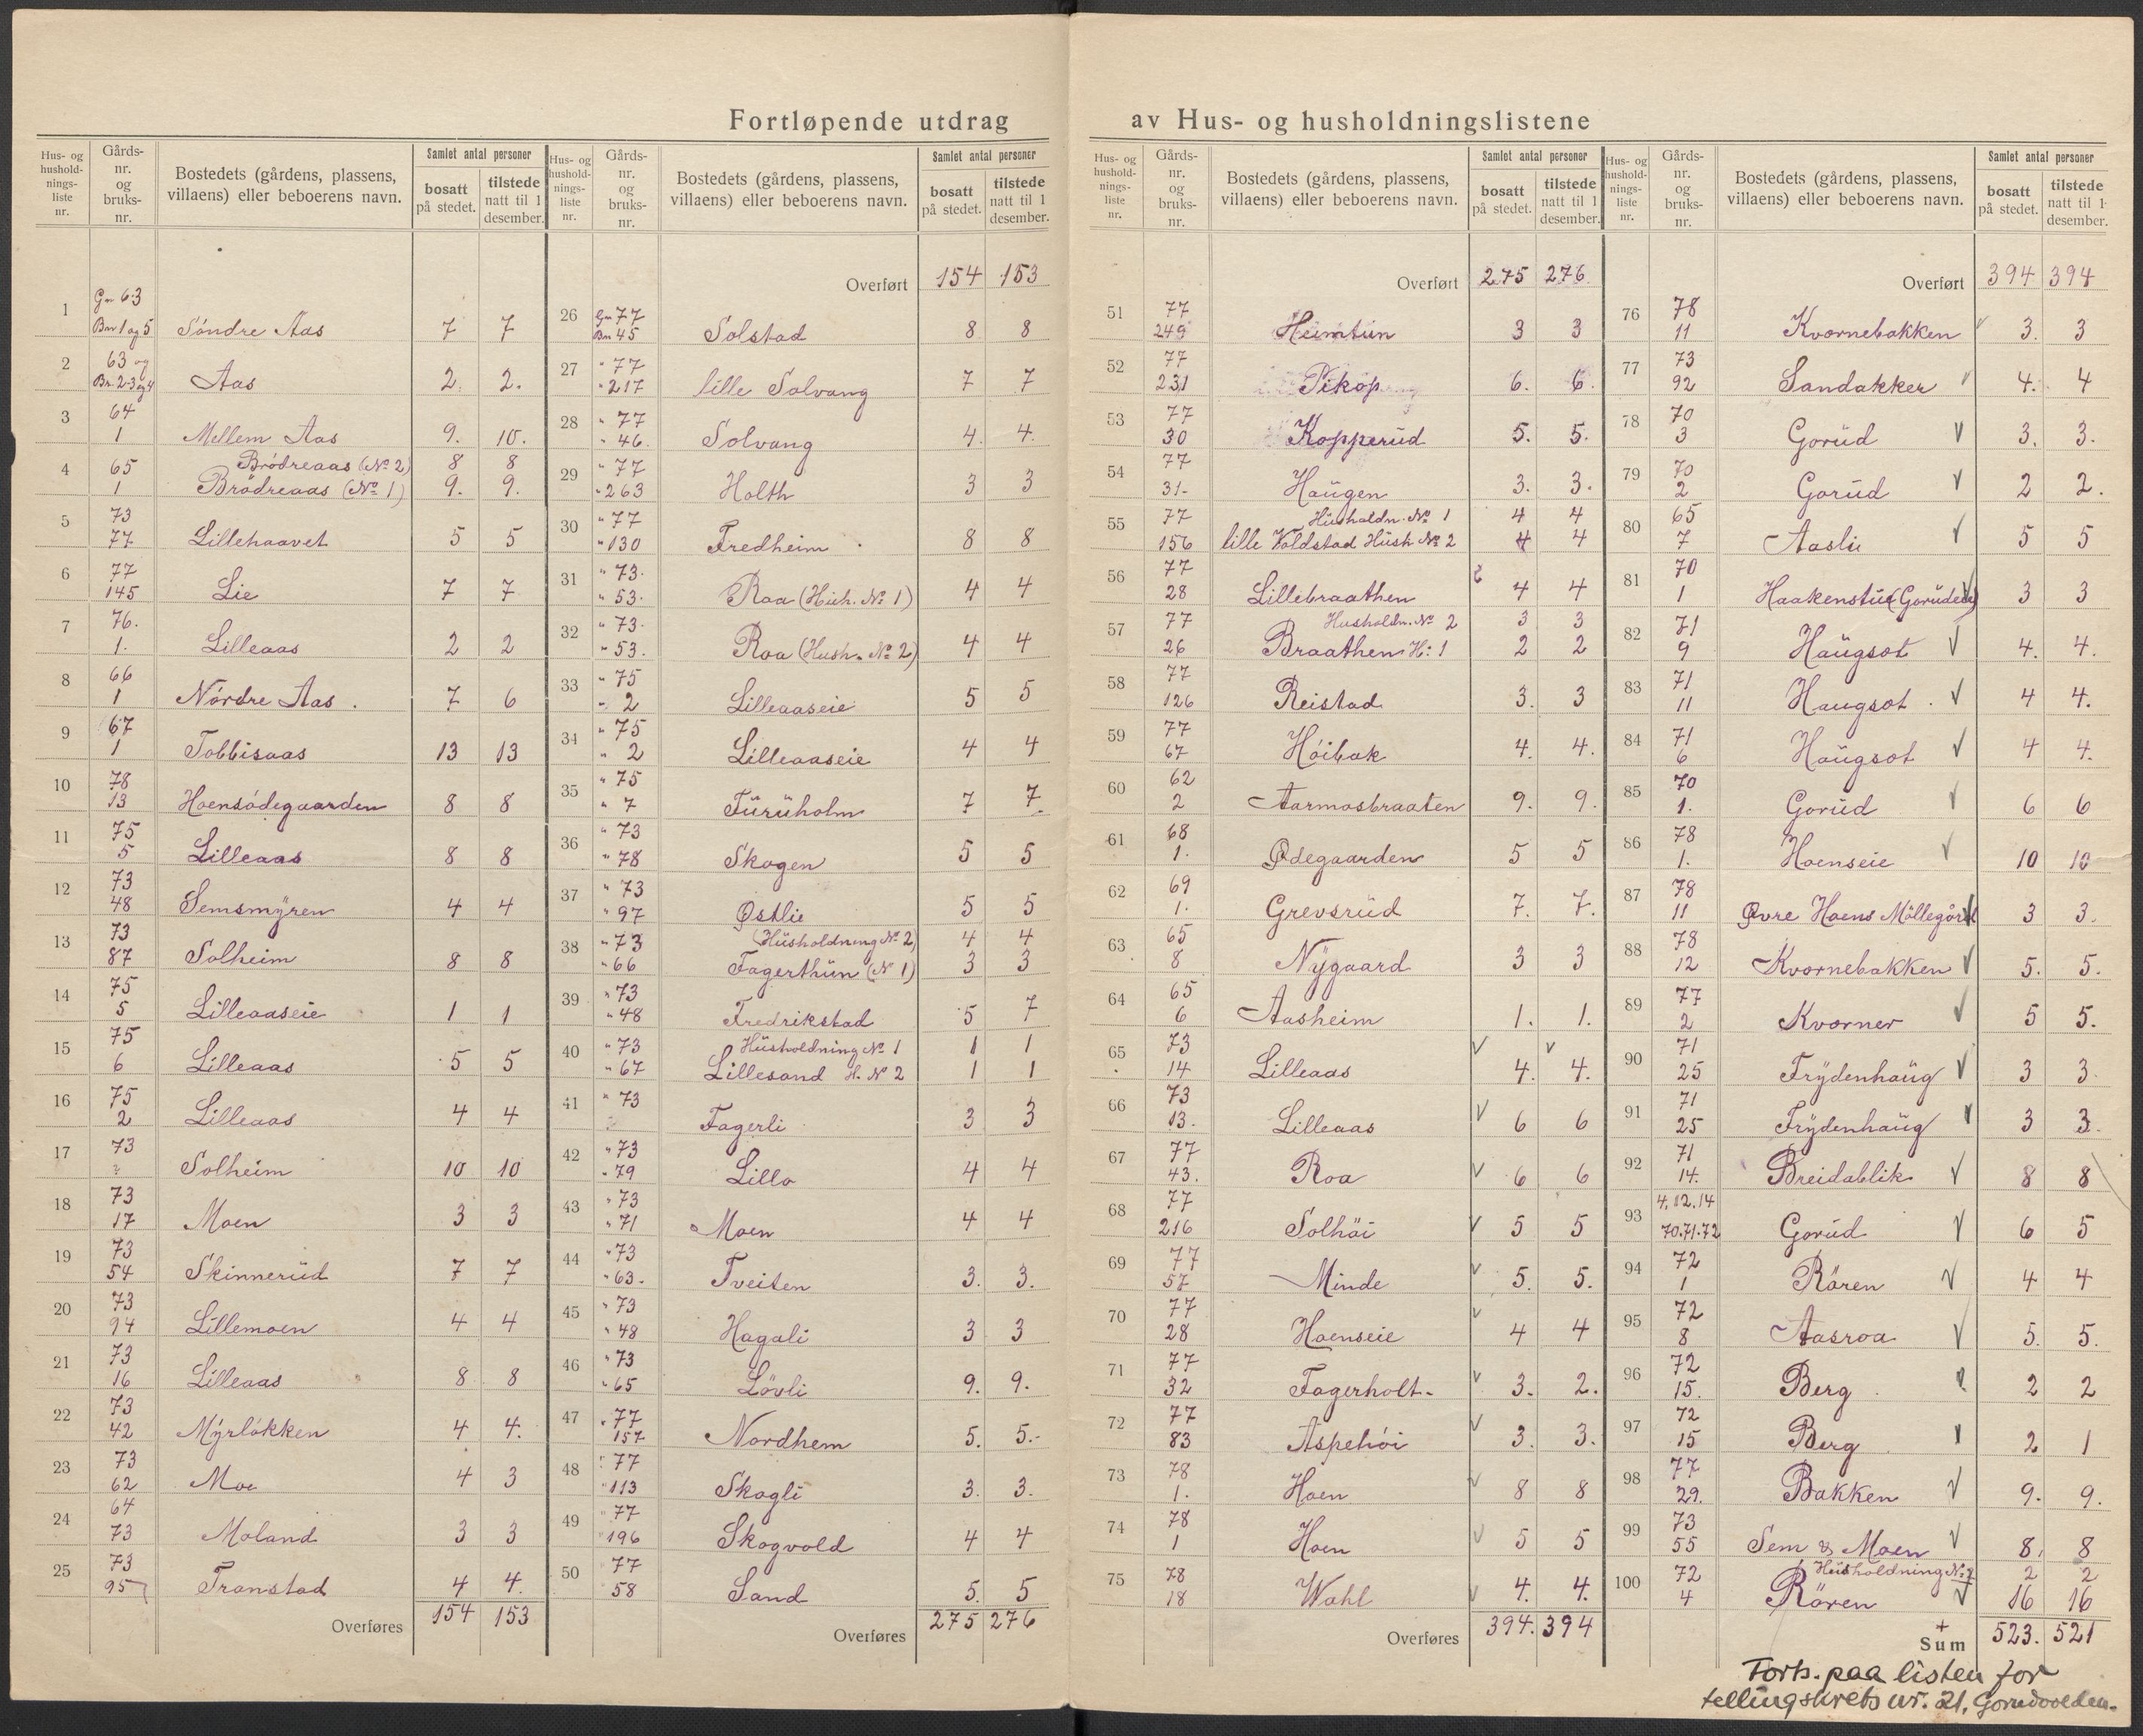 Fortløpende utdrag av Hus- og husholdningslistene
Hus- og husholdnings-liste nr. | Gårds-nr. og bruks-nr. | Bostedets (gårdens, plassens, villaens) eller beboerens navn. | Samlet antal personer | bosatt på stedet. | tilstede natt til 1 desember.
1 Gn 63 Bn 1 og 5 Söndre Aas 7 7
2 63 og Bn. 2-3 og 4 Aas 2. 2.
3 64 1 Mellem Aas 9. 10.
4 65 1 Brödreaas (No 2) 8 8
Brödreaas (No 1) 9. 9.
5 73 77 Lillehaavet 5 5
6 77 145 Lie 7 7
7 76. 1. Lilleaas 2 2
8 66 1 Nórdre Aas. 7 6
9 67 1 Tobbisaas 13 13
10 78 13 Hoensódegaarden 8 8
11 75 5 Lilleaas 8 8
12 73 48 Semsmÿren 4 4
13 73 87 Solheim 8 8
14 75 5 Lilleaaseie 1 1
15 75 6 Lilleaas 5 5
16 75 2 Lilleaas 4 4
17 73 Solheim 10 10
18 73 17 Moen 3 3
19 73 54 Skinnerüd 7 7
20 73 94 Lillemoen 4 4
21 73 16 Lilleaas 8 8
22 73 42 Mÿrlökken 4 4.
23 73 62 Moe 4 3
24 64 73 Moland 3 3
25 73 95 Transtad 4 4.
Overføres 154 153
Hus- og husholdnings-liste nr. | Gårds-nr. og bruks-nr. | Bostedets (gårdens, plassens, villaens) eller beboerens navn. | Samlet antal personer | bosatt på stedet. | tilstede natt til 1 desember.
Overført 154 153
26 Gn 77 Bn 45 Solstad 8 8
27 " 77 " 217 lille Solvang 7 7
28 " 77 " 46. Solvang 4. 4.
29 " 77 " 263 Holth 3 3
30 " 77 " 130 Fredheim 8 8
31 " 73. " 53. Roa (Hush. No 1) 4 4
32 " 73. " 53. Roa (Hush. No 2) 4 4
33 " 75 " 2 Lilleaaseie 5 5
34 " 75 " 2 Lilleaaseie 4 4
35 " 75 " 7 Fürüholm 7 7.
36 " 73 " 78 Skogen 5 5
37 " 73 " 97 Østlie 5 5
38 " 73 " 66 (Hüsholdning No 2) 4 4
Fagerthün (No 1) 3 3
39 " 73 " 48 Fredrikstad 5 7
40 " 73 " 67 Hüsholdning No 1 1 1
Lillesand H. No 2 1 1
41 " 73 Fagerli 3 3
42 " 73 " 79 Lillo 4 4
43 " 73 " 71 Moen 4 4
44 " 73 " 63. Tveiten 3. 3.
45 " 73 " 48 Hagali 3 3
46 " 73 " 65 Lövli 9. 9.
47 " 77 157 Nordhem 5. 5.-
48 " 77 " 113 Skogli 3. 3.
49 " 77 " 196 Skogvold 4 4
50 " 77 58 Sand 5. 5
Overføres 275 276
Hus- og husholdnings-liste nr. | Gårds-nr. og bruks-nr. | Bostedets (gårdens, plassens, villaens) eller beboerens navn. | Samlet antal personer | bosatt på stedet. | tilstede natt til 1 desember.
Overført 275 276
51 77 249 Heimtün 3 3
52 77 231 Pikop 6. 6.
53 77 30 Kopperüd 5. 5.
54 77 31- Haügen 3. 3.
55 77 156 Hüsholdn. No 1 4 4
lille Voldstad Hüsh No 2 4 4
56 77 28 Lillebraathen 4 4
57 77 26 Husholdn. No 2 3 3
Braathen H: 1 2 2
58 77 126 Reistad 3. 3
59 77 67 Hóibak 4. 4.
60 62 2 Aarmosbraaten 9. 9.
61 68 1. Ødegaarden 5 5
62 69 1. Grevsrüd 7. 7.
63 65 8 Nÿgaard 3 3
64 65 6 Aasheim 1. 1.
65 73 14 Lilleaas 4. 4.
66 73 13. Lilleaas 6 6
67 77 43. Roa 6 6
68 77 216 Solhöi 5 5
69 77 57 Minde 5. 5.
70 77 28 Hoenseie 4 4
71 77 32 Fagerholt- 3. 2.
72 77 83 Aspehói 3. 3.
73 78 1. Hoen 8 8
74 78 1 Hoen 5 5
75 78 18 Wahl 4. 4.
Overføres 394. 394
Hus- og husholdnings-liste nr. | Gårds-nr. og bruks-nr. | Bostedets (gårdens, plassens, villaens) eller beboerens navn. | Samlet antal personer | bosatt på stedet. | tilstede natt til 1 desember.
Overført 394 394
76 78 11 Kvornebakken 3. 3
77 73 92 Sandakker 4. 4
78 70 3 Gorüd 3. 3.
79 70 2 Gorüd 2 2.
80 65 7 Aaslie 5 5
81 70 1 3 3
82 71 9 Haügsot 4. 4.
83 71 11 Haugsot 4 4.
84 71 6 Haügsot 4 4.
85 70 1. Gorüd 6 6
86 78 1. Hoenseie 10 10
87 78 11 Øvre Hoens Möllegård 3 3.
88 78 12 Kvornebakken 5. 5.
89 77 2 Kvorner 5 5.
90 71 25 Frÿdenhaüg 3 3
91 71 25 Frÿdenhaüg 3 3.
92 71 14. Breidablik 8 8
93 4,12.14 70.71.72 Gorüd 6 5
94 72 1 Rören 4 4
95 72 8 Aasroa 5. 5.
96 72 15. Berg 2 2
97 72 15 Berg 2 1
98 77 29. Bakken 9. 9.
99 73 55 Sem & Moen 8. 8
100 72 4 Hüsholdning No 2 2 2
Rören 16 16
Sum 523. 521
Forts. paa listen for
tellingskrets nr. 21, Gorudvolden.